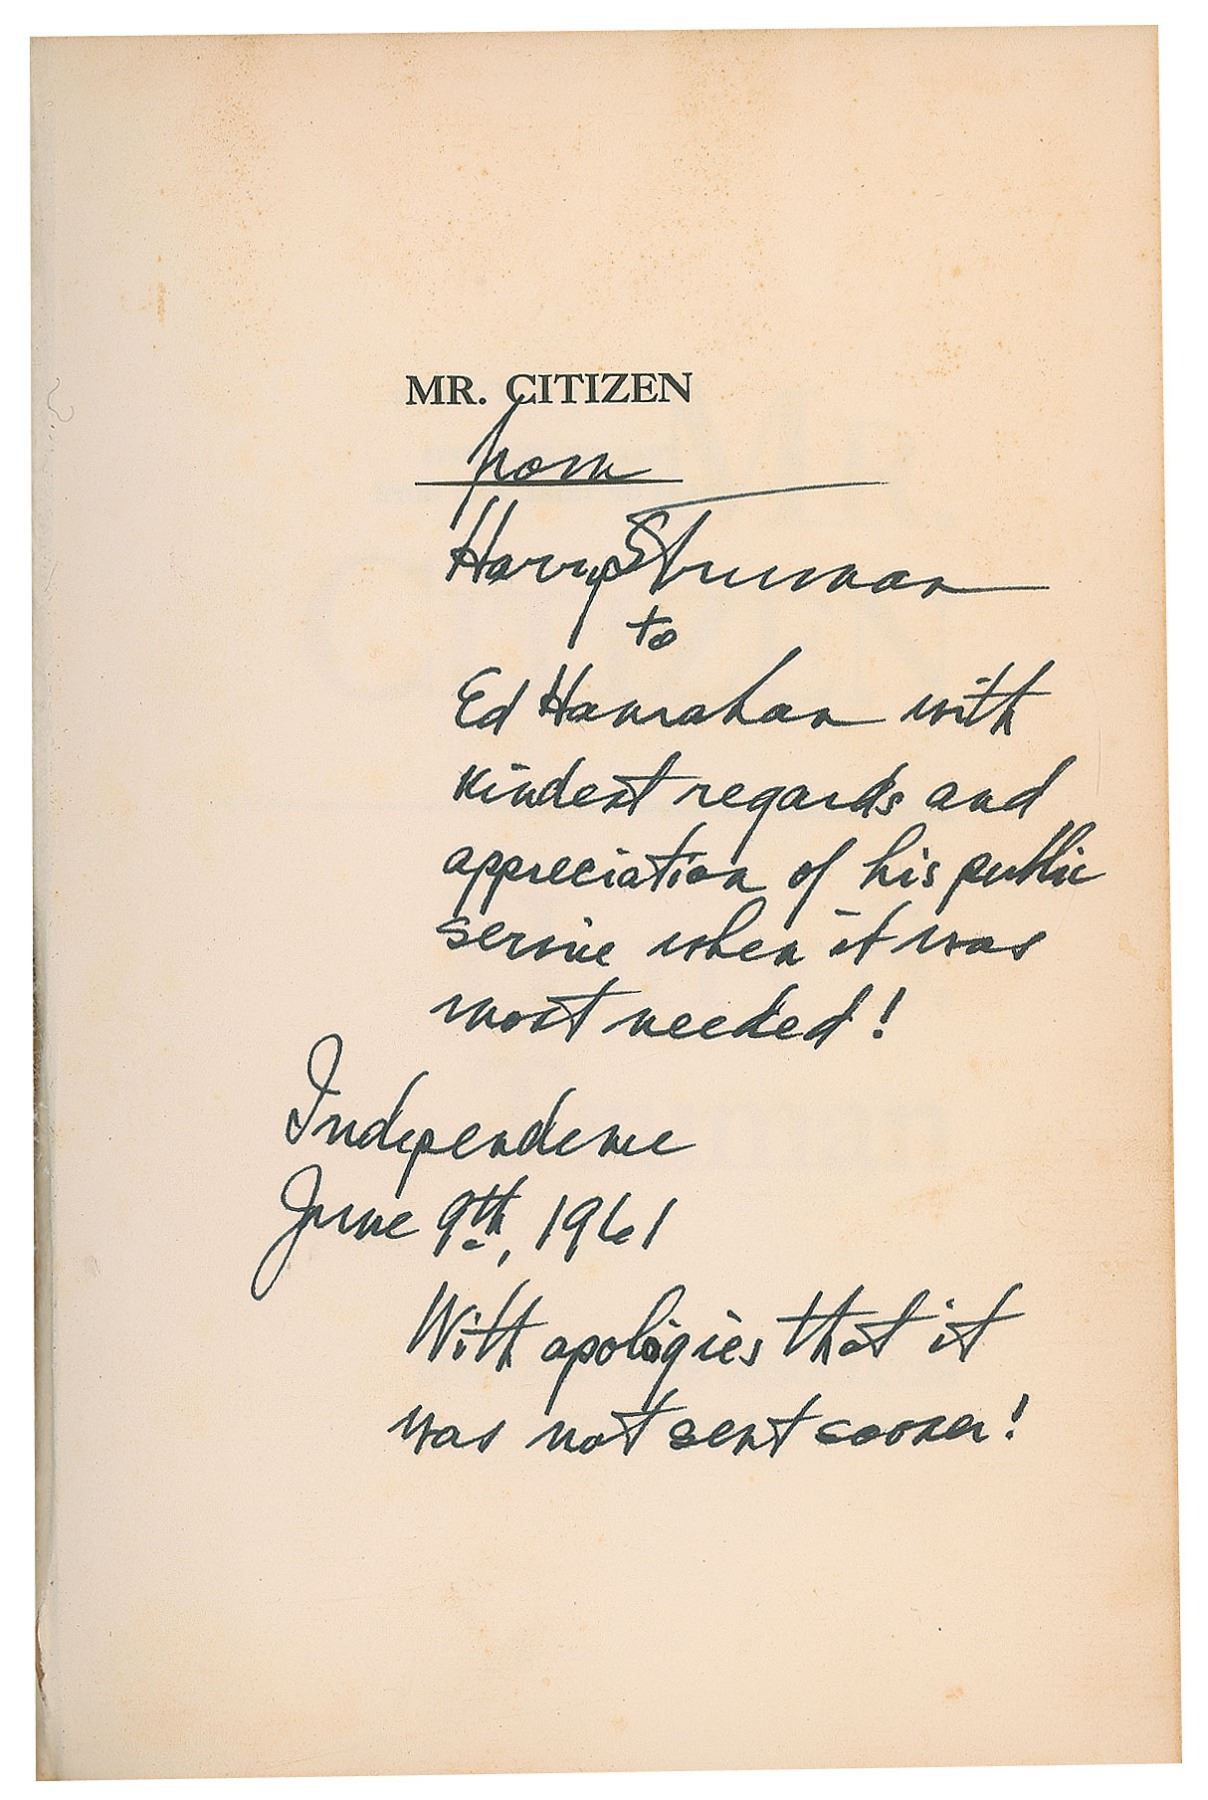 MR. CITIZEN
from
Harry S Truman
to
Ed Hanrahan with
kindest regards and
appreciation of his public
service when it was
most needed!
Independence
June 9th, 1961
With apologies that it
was not sent sooner!